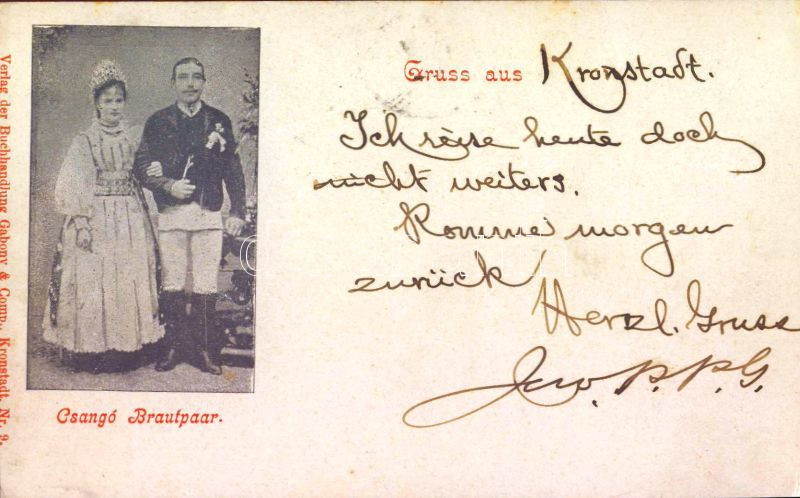 Gruss aus Kronstadt.
Ich reise heute doch
nicht weiters.
Komme morgen
zurück
Herzl. Gruss
P.P.G.
Csangó Brautpaar.
Verlag der Buchhandlung Gabony & Comp., Kronstadt. Nr. 9.